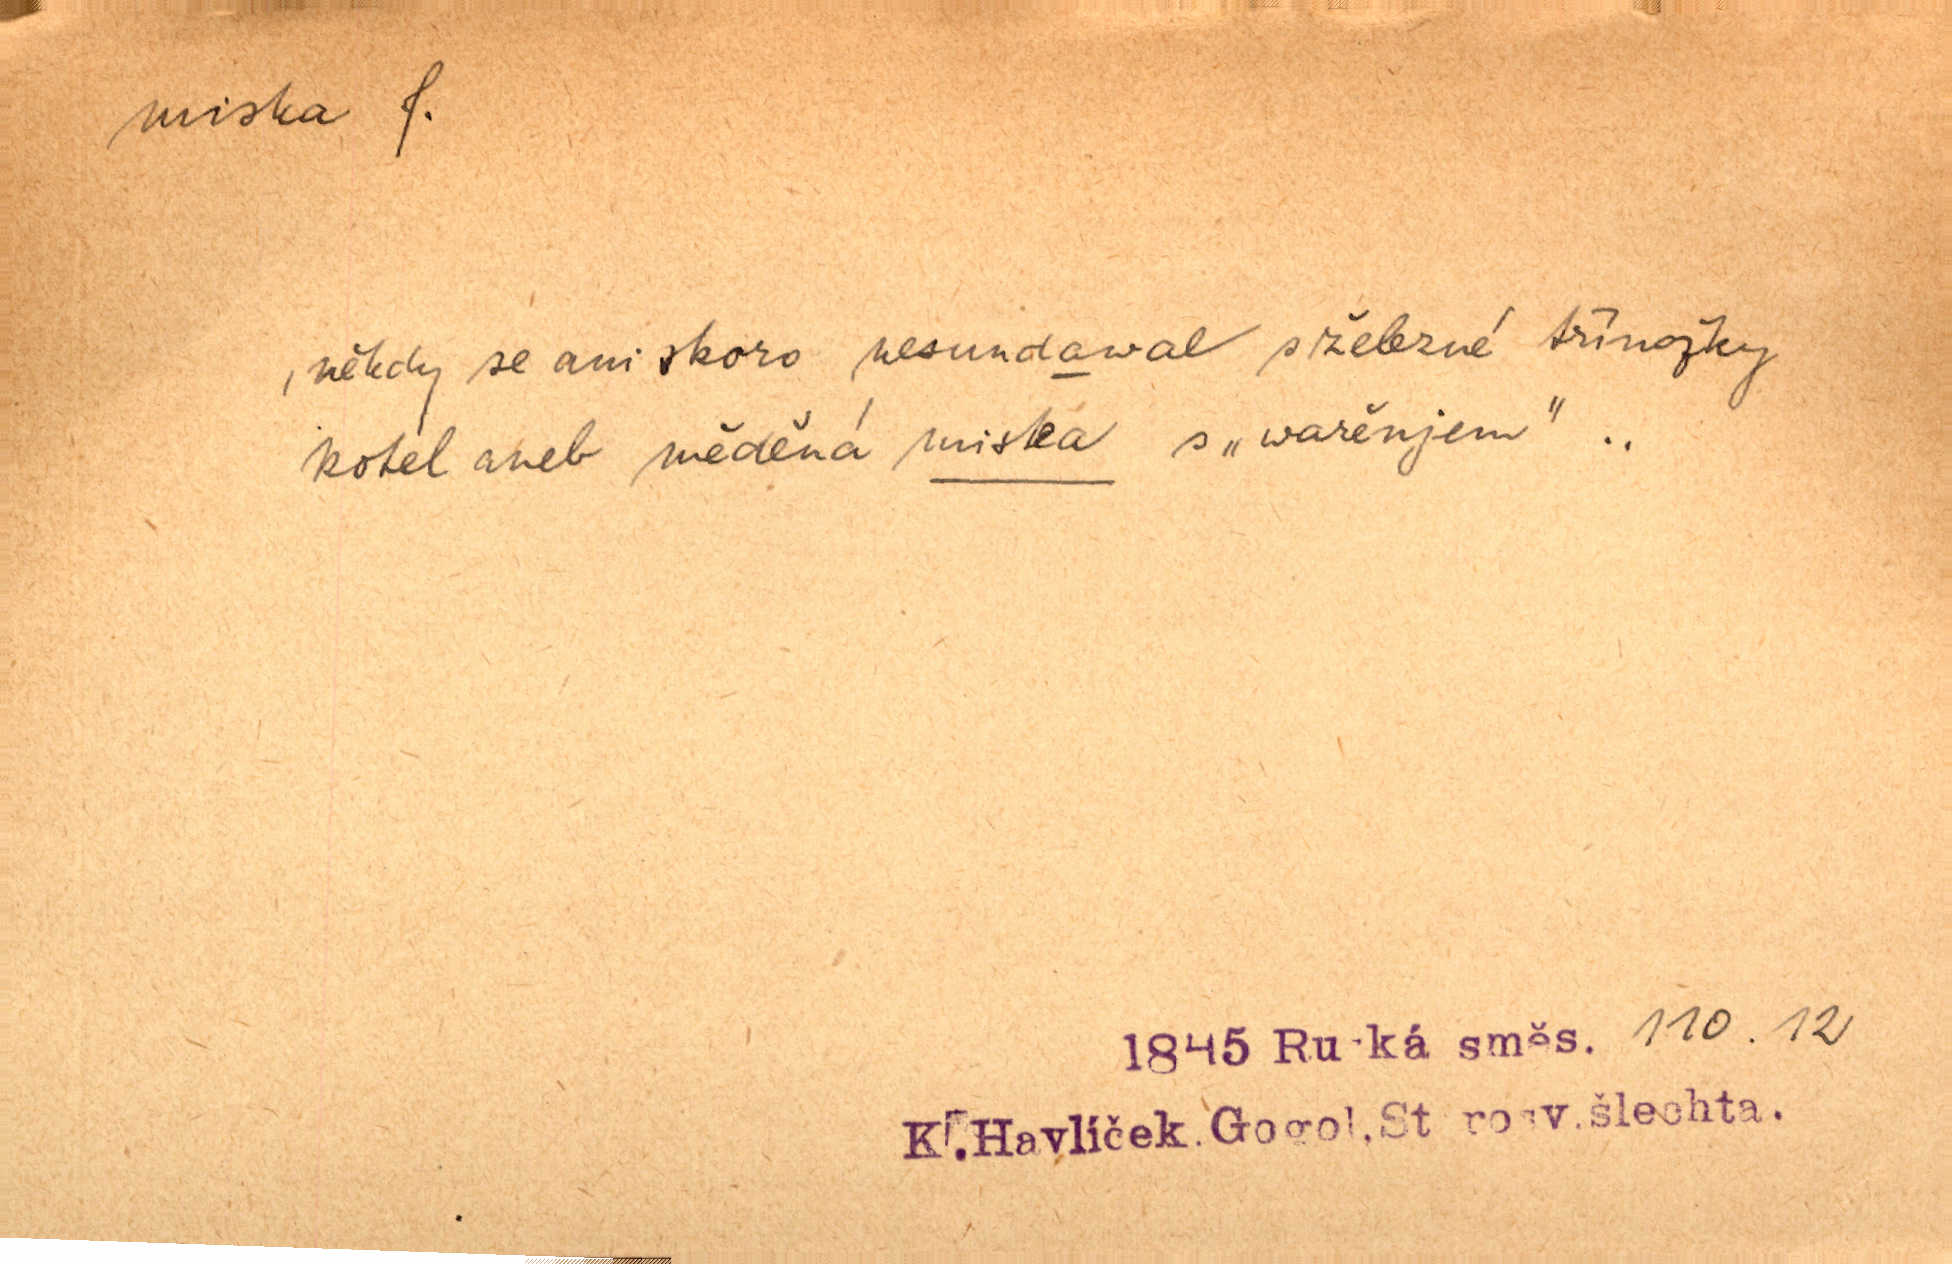 miska f.
, někdy se ani skoro nesundawal s železné třínožky
kotel aneb měděná miska s „wařěnjem" ..
1845 Ru ká směs. 110. 12
K . Havlíček. Gogol, St rosv. šlechta.